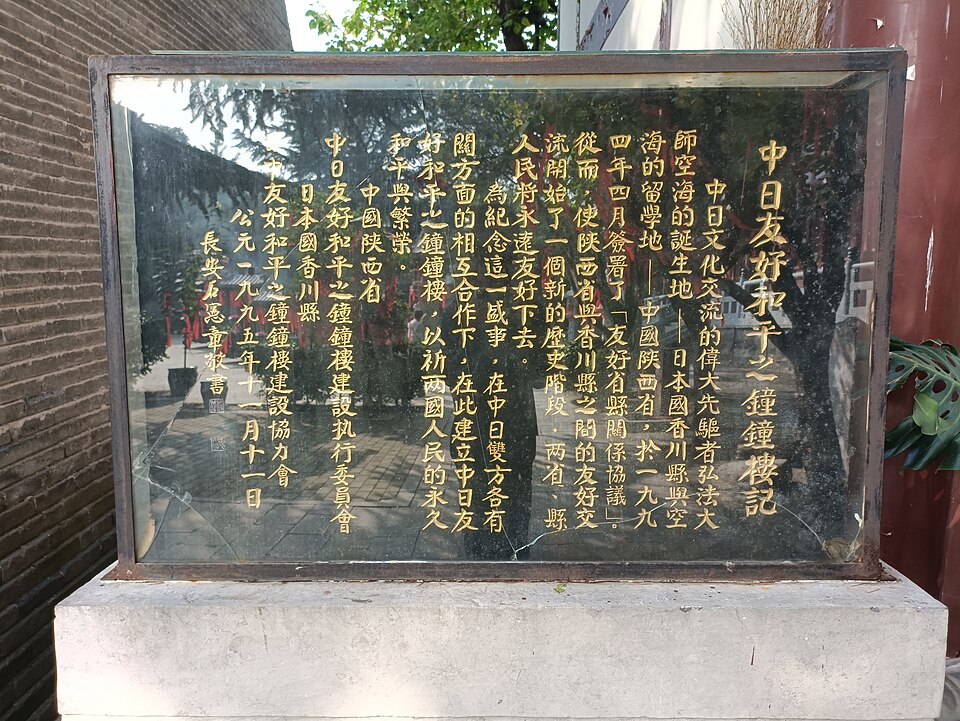 中日友好和平之鐘鐘樓記
中日文化交流的偉大先驅者弘法大
師空海的誕生地——日本國香川縣與空
海的留學地——中國陝西省，於一九九
四年四月簽署了「友好省縣關係協議」。
從而，使陝西省與香川縣之間的友好交
流開始了一個新的歷史階段，两省、縣
人民將永遠友好下去。
為紀念這一盛事，在中日雙方各有
關方面的相互合作下，在此建立中日友
好和平之鐘鐘樓，以祈两國人民的永久
和平與繁榮。
中國陝西省
中日友好和平之鐘鐘樓建設执行委員會
日本國香川縣
中友好和平之鐘鐘樓建設協力會
公元一九九五年十一月十一日
長安 童敬書